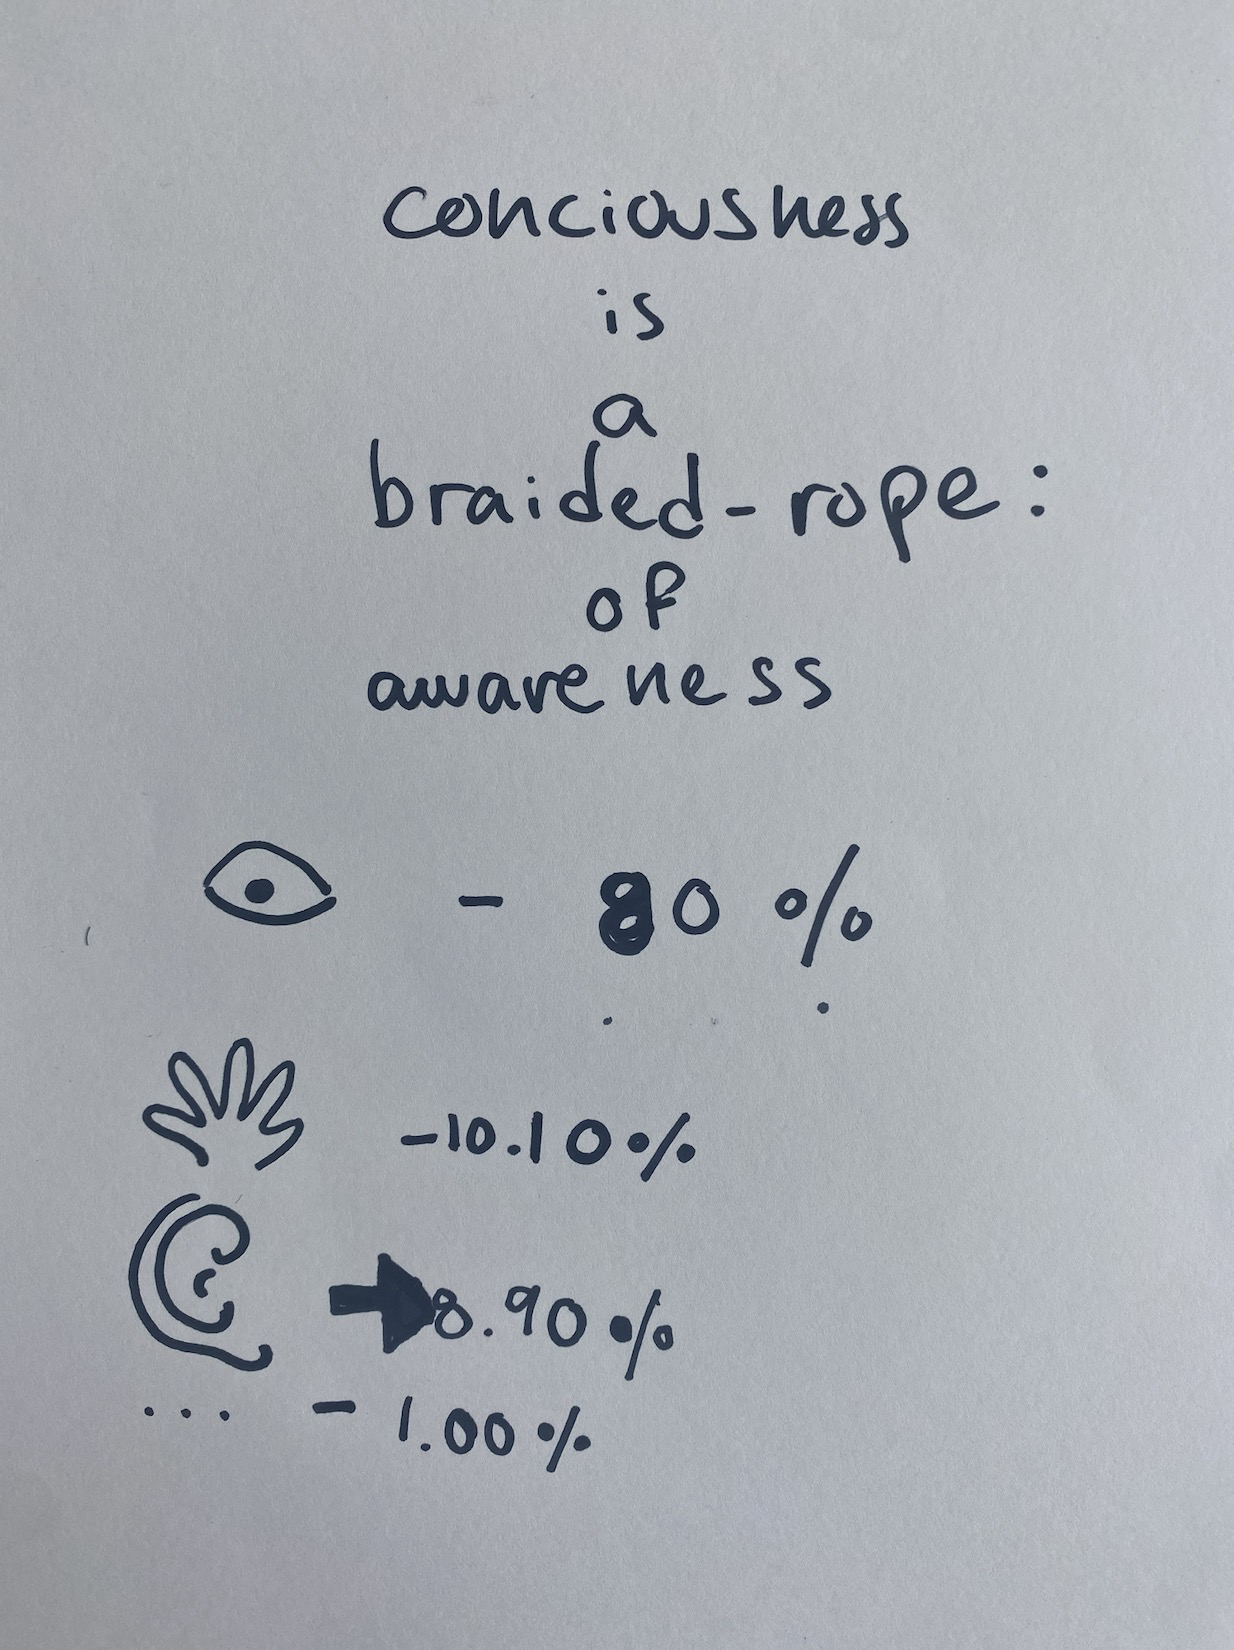 conciousness
is
a
braided-rope:
of
awareness
- 80 %
-10.10%
8.90%
... - 1.00%